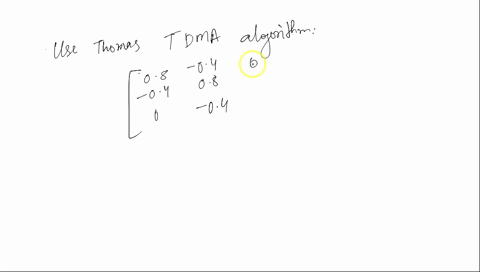 Use Thomas TDMA algorithm:
0.8 -0.4 0
-0.4 0.8
0 -0.4